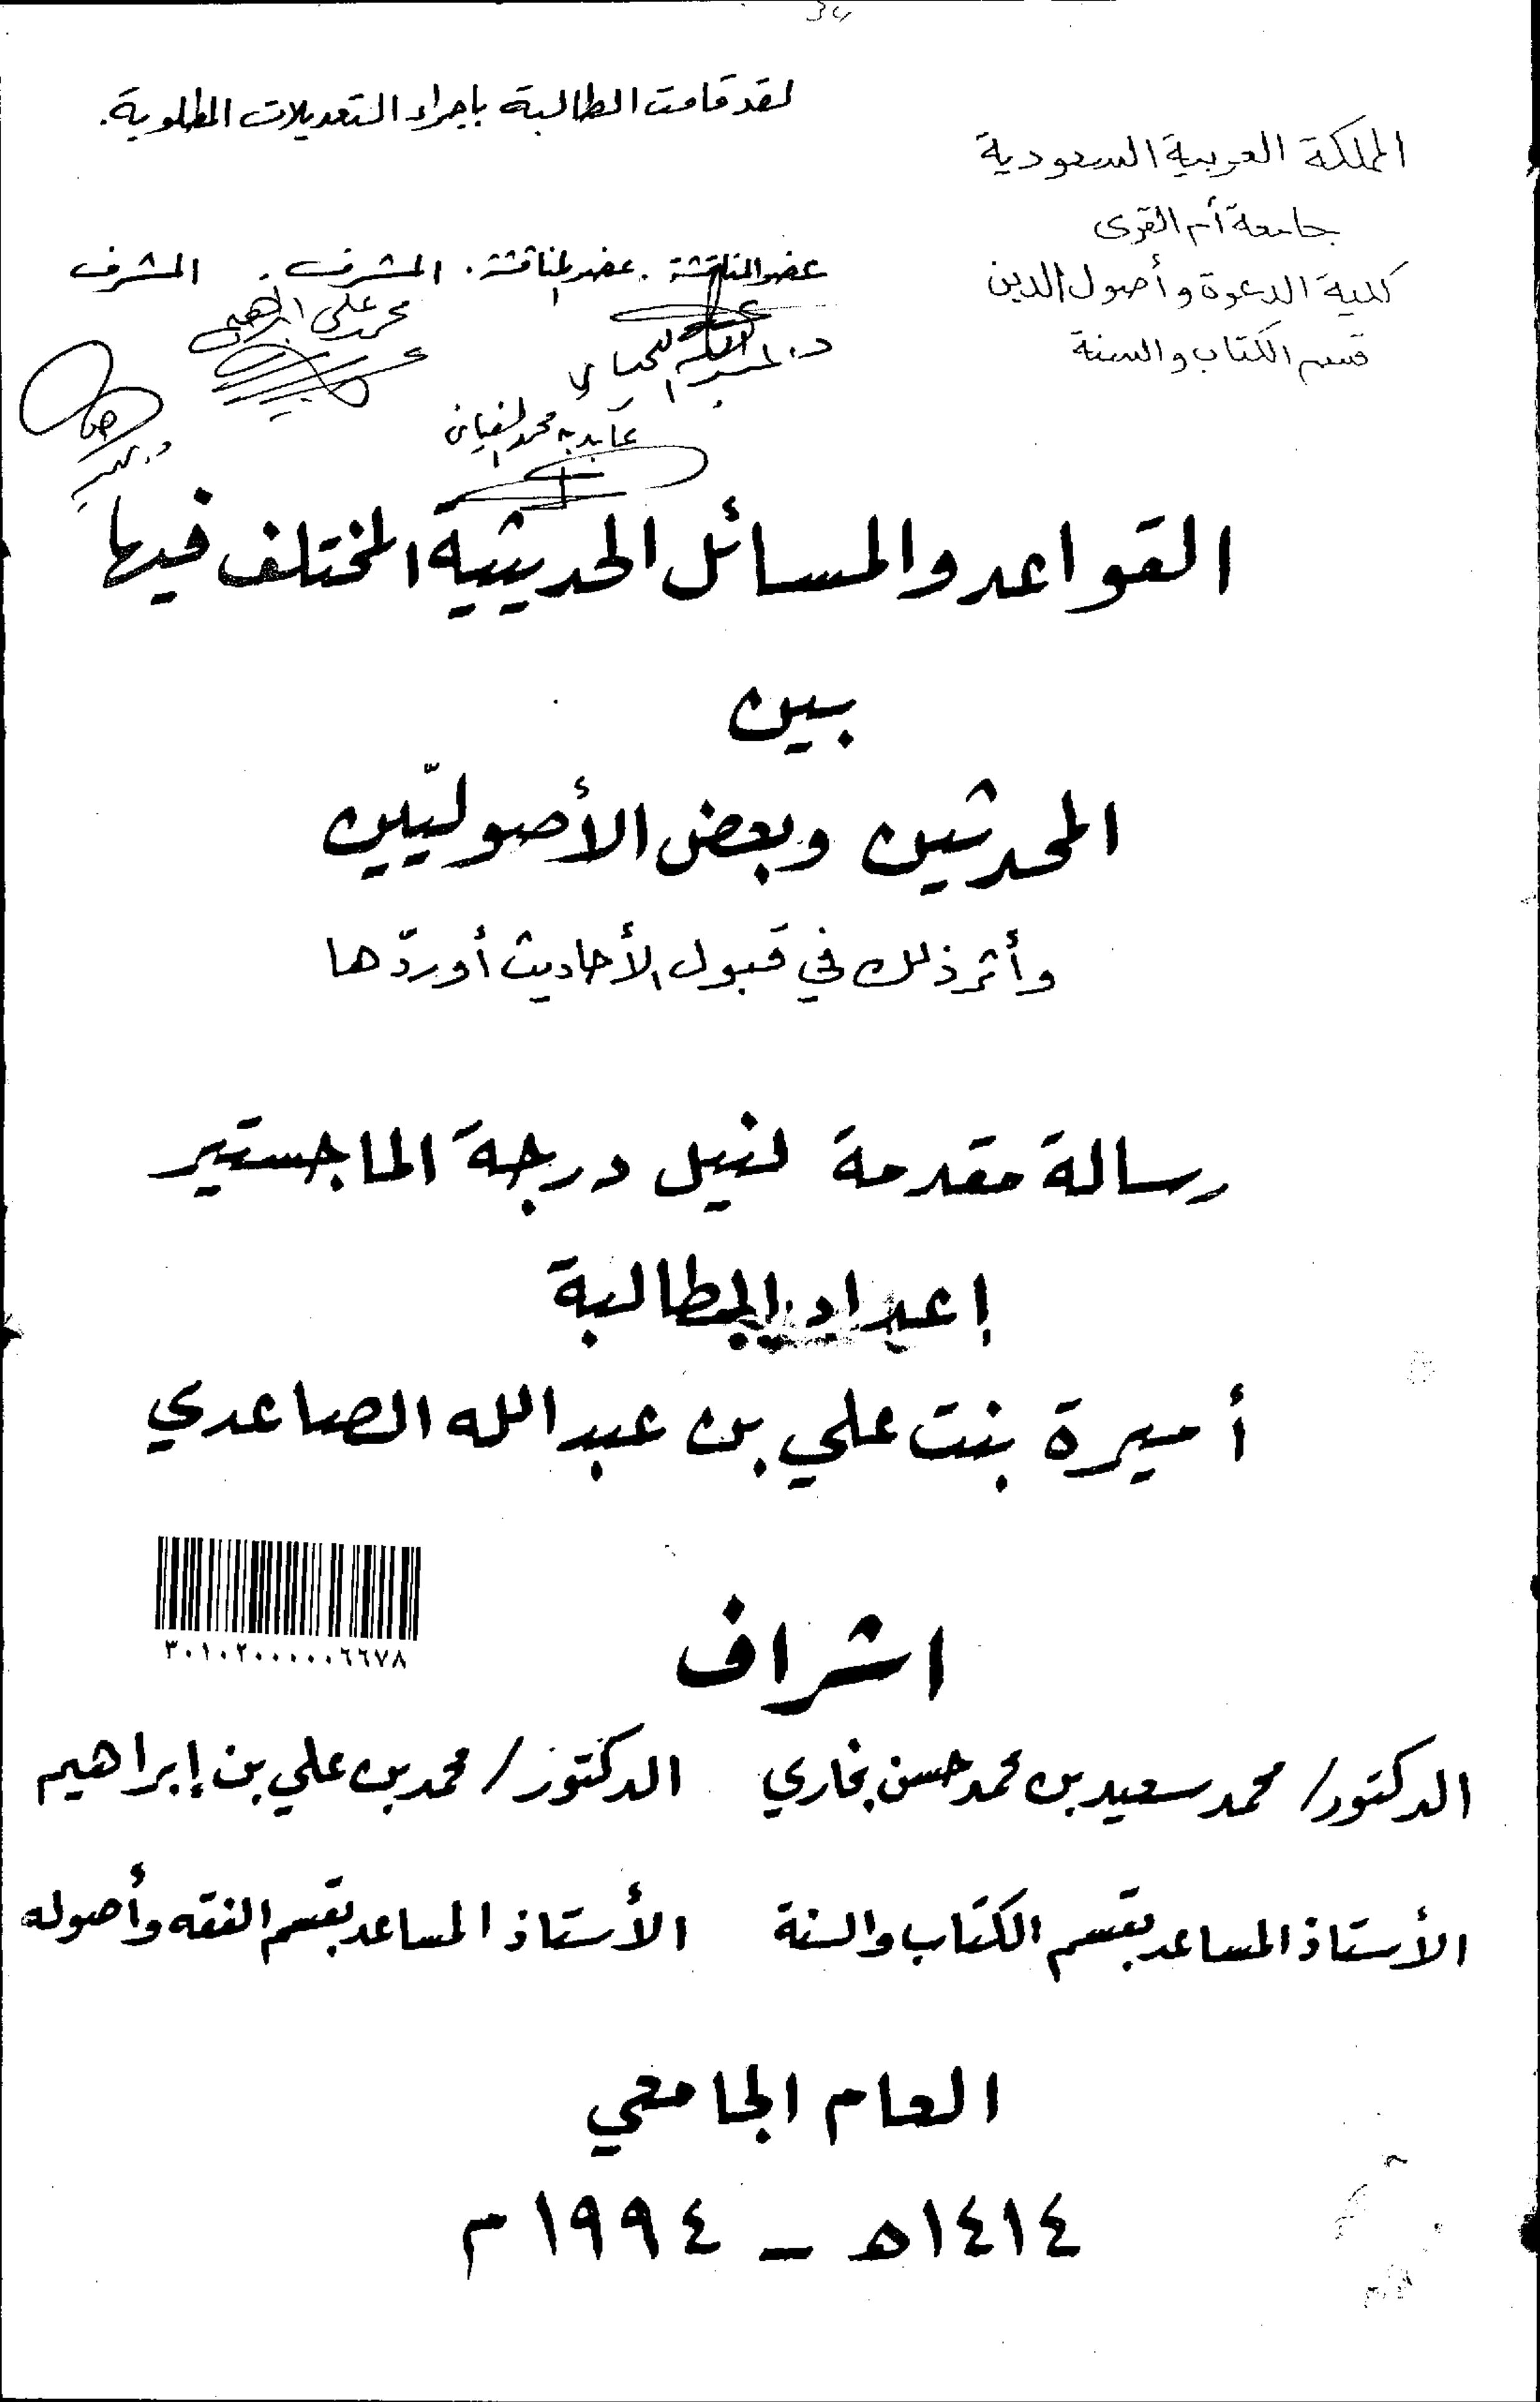 لقد قامت الطالبة باجراء التعديلات المطلوبة.
المملكة العربية السعودية
جامعة أم القرى
كلية الدعوة وأصول الدين
قسم الكتاب والسنة
عضو المناقشة . عضو المناقشة . المشرف . المشرف
محمد علي ابراهيم
القواعد والمسائل الحديثية المختلف فيها
بين
المحدثين وبعض الأصوليّين
وأثر ذلك في قبول الأحاديث أو ردّها
رسالة مقدمة لنيل درجة الماجستير
إعداد الطالبة
أميرة بنت علي بن عبد الله الصاعدي
٣٠١٠٢٠٠٠٠٠٦٦٧٨
اشراف
الدكتور/ محمد سعيد بن محمد حسن بخاري الدكتور/ محمد بن علي بن إبراهيم
الأستاذ المساعد بقسم الكتاب والسنة الأستاذ المساعد بقسم الفقه وأصوله
العام الجامعي
١٤١٤هـ – ١٩٩٤م